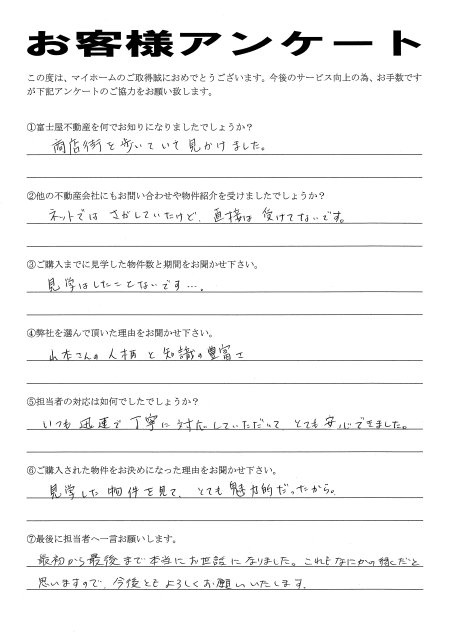 お客様アンケート
この度は、マイホームのご取得誠におめでとうございます。今後のサービス向上の為、お手数です
が下記アンケートのご協力をお願い致します。
①富士屋不動産を何でお知りになりましたでしょうか？
商店街を歩いていて見かけました。
②他の不動産会社にもお問い合わせや物件紹介を受けましたでしょうか？
ネットでは さがしていたけど、直接は 受けてないです。
③ご購入までに見学した物件数と期間をお聞かせ下さい。
見学はしたことないです…。
④弊社を選んで頂いた理由をお聞かせ下さい。
山本さんの人柄と知識の豊富さ
⑤担当者の対応は如何でしたでしょうか？
いつも迅速で丁寧に対応していただいて、とても安心できました。
⑥ご購入された物件をお決めになった理由をお聞かせ下さい。
見学した物件を見て、とても魅力的だったから。
⑦最後に担当者へ一言お願いします。
最初から最後まで本当にお世話になりました。これもなにかの縁だと
思いますので、今後ともよろしくお願いいたします。